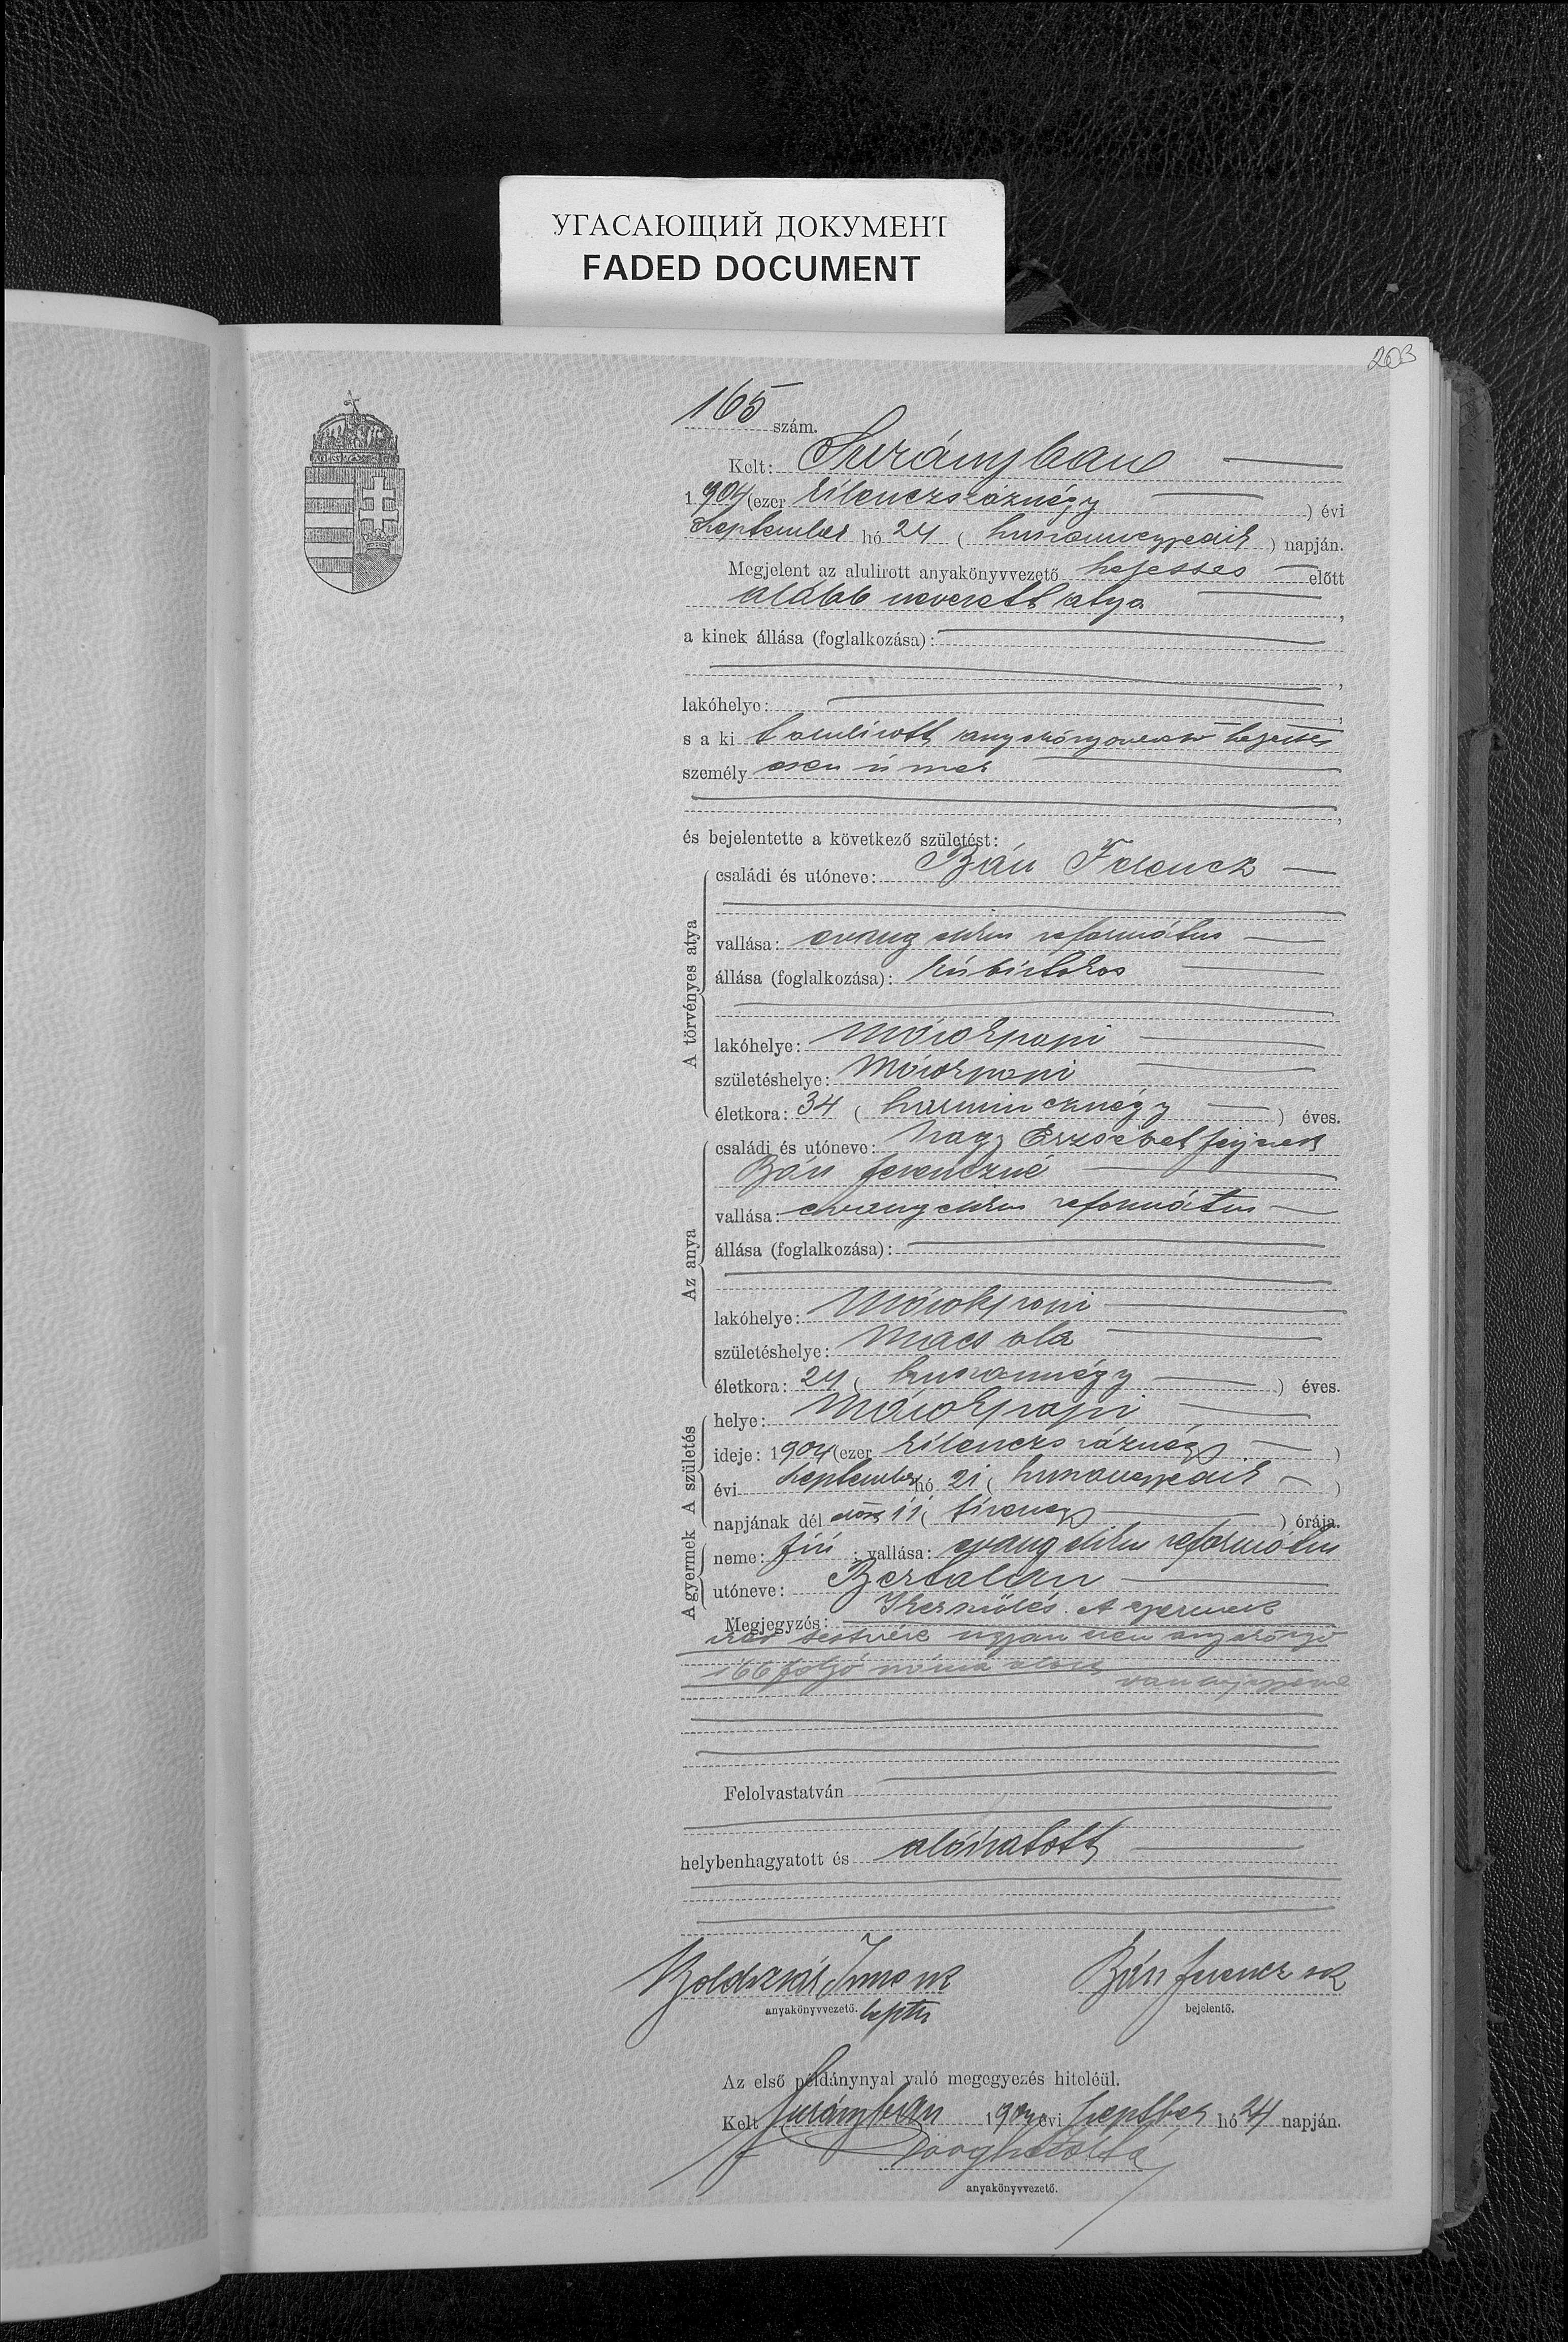 УГАСАЮЩИЙ ДОКУМЕНТ
FADED DOCUMENT
203
165 szám.
Kelt: Surányban
1904 (ezer kilenczszáznégy ) évi
September hó 24 ( huszonnegyedik ) napján.
Megjelent az alulirott anyakönyvvezető helyettes előtt
alább nevezett atya ,
a kinek állása (foglalkozása):
,
lakóhelye: ,
s a ki alulirott anyakönyvvezető helyettes
személyesen ismer
,
és bejelentette a következő születést:
A törvényes atya
családi és utóneve: Bán Ferencz
vallása: evang elikus református
állása (foglalkozása): kisbirtokos
lakóhelye: Márokpapi
születéshelye: Márokpapi
életkora: 34 ( harmincznégy ) éves.
Az anya
családi és utóneve: Nagy Erzsébet férjezett
Bán Ferenczné
vallása: evangelikus református
állása (foglalkozása):
lakóhelye: Márokpapi
születéshelye: Macsola
életkora: 24 ( huszonnégy ) éves.
A születés
helye: Márokpapi
ideje: 1904 (ezer kilenczszáznégy )
évi September hó 21 ( huszonegyedik )
napjának dél előtt 11 ( tizenegy ) órája.
A gyermek
neme: fiú ; vallása: evang elikus református
utóneve: Bertalan
Megjegyzés: Ikerszülés. A gyermek
iker testvére ugyan ezen anyakönyv
166 folyó száma alatt van bejegyezve
Felolvastatván
helybenhagyatott és aláíratott
Imre sk Bán Ferencz sk
anyakönyvvezető. bejelentő.
Az első példánynyal való megegyezés hiteléül.
Kelt Surányban 1904 évi Septber hó 24 napján.
anyakönyvvezető.